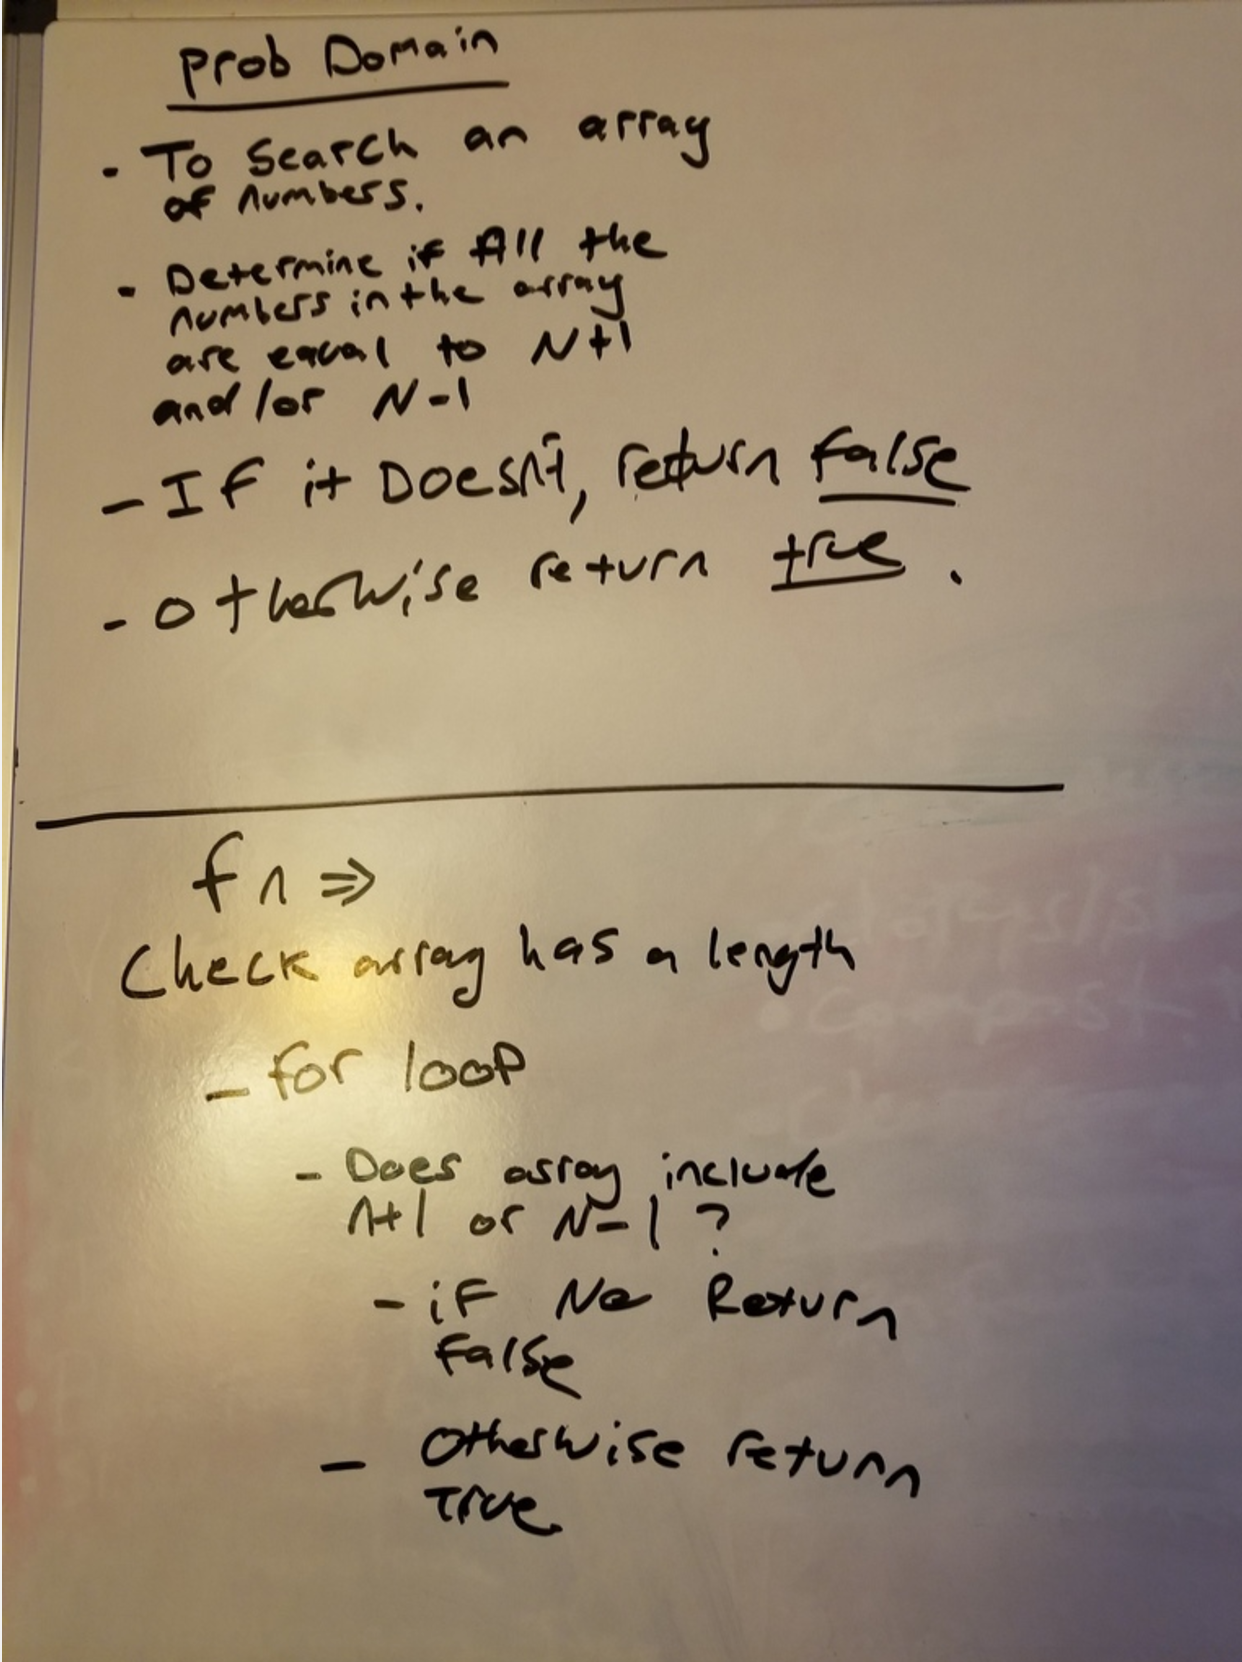 Prob Domain
- To Search an array
of numbers.
- Determine if All the
numbers in the array
are equal to N+1
and/or N-1
- If it Doesn't, return false
- otherwise return true.
fn =>
Check array has a length
- for loop
- Does array include
n+1 or N-1 ?
- if No Return
False
- Otherwise return
True